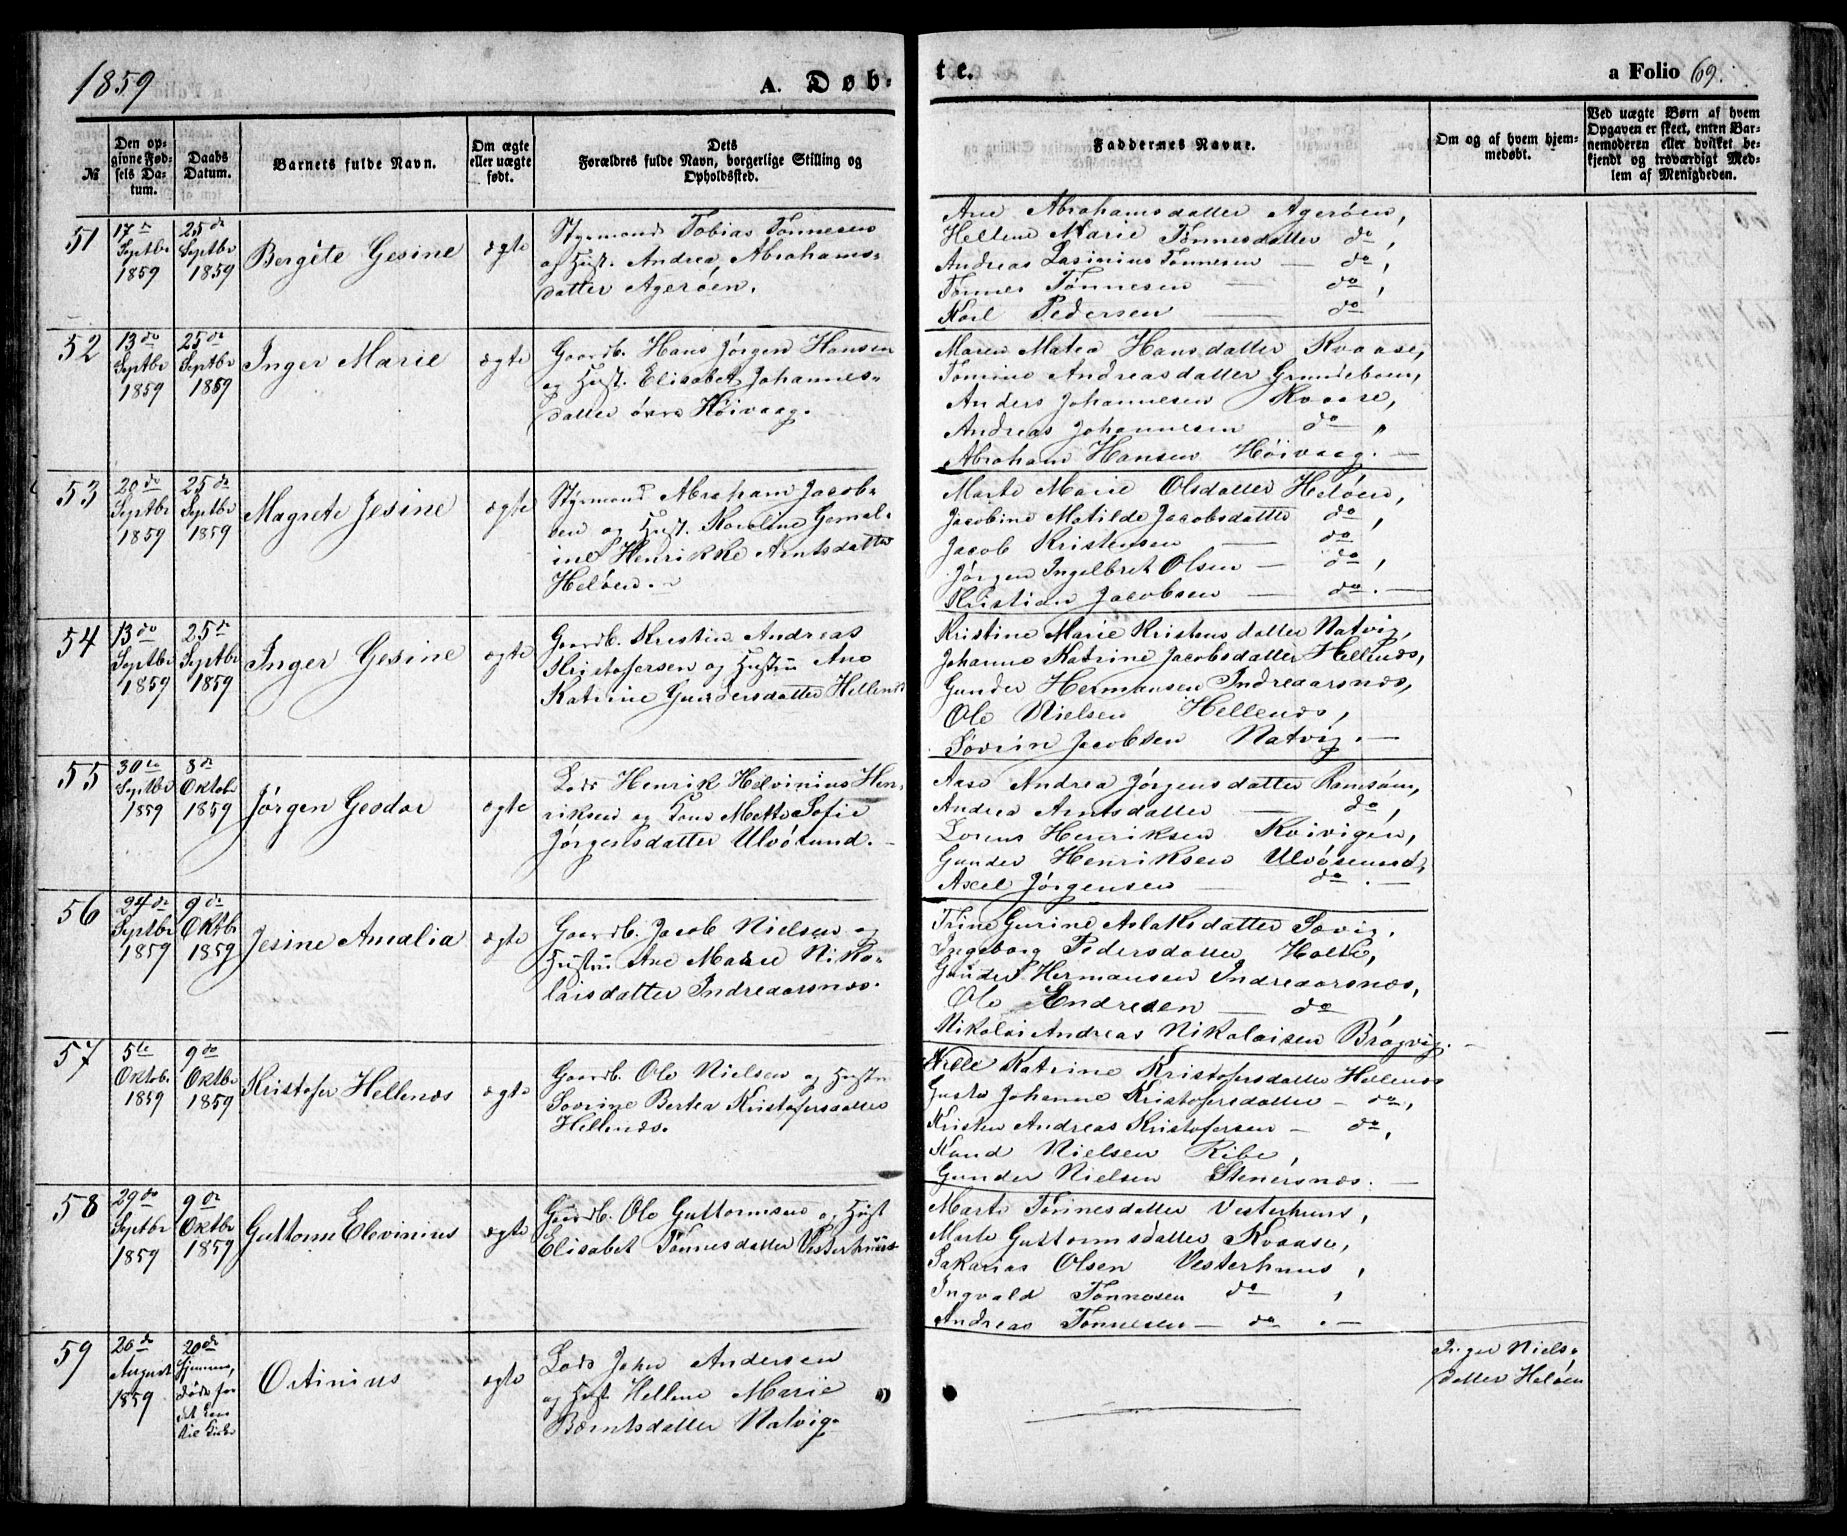 1859
A. Døb-
te.
a Folio 69.
№
Den op-
givne Fød-
sels Da-
tum.
Daabs
Datum.
Barnets fulde Navn.
Om ægte
eller uægte
født.
Dets
Forældres fulde Navn, borgerlige Stilling og
Opholdssted.
Faddernes Navne.
Om og af hvem hjem-
medøbt.
Ved uægte Børn af hvem
Opgaven er skeet, enten Bar-
nemoderen eller hvilket be-
kjendt og troværdigt Med-
lem af Menigheden.
51
17de
Septbr
1859
25de
Septbr
1859
Bergete Gesine
ægte
Styrmand Tobias Tønnesen
og Hust. Andrea Abrahams-
datter Agerøen.
Ane Abrahamsdatter Agerøen,
Hellene Marie Tønnesdatter do,
Andreas Tønnesen — do,
Tønnes Tønnesen — do,
Karl Pedersen — do
52
13de
Septbr
1859
25de
Septbr
1859
Inger Marie
ægte
Gaardb. Hans Jørgen Hansen
og Hust. Elisabet Johannes-
datter øvre Høivaag.
Maren Matea Hansdatter Kvaase,
Tomine Andreasdatter Grundeboen,
Anders Johannesen Kvaase,
Andreas Johannesen do "
Abraham Hansen Høivaag. —
53
20de
Septbr
1859
25de
Septbr
1859
Magrete Jesine
ægte
Styrmand Abraham Jacob-
sen og Hust. Karoline Gemal-
ine Henrikke Arntsdatter
Heløen. —
Marte Marie Olsdatter Heløen,
Jacobine Matilde Jacobsdatter do,
Jacob Kristensen — do
Jørgen Ingelbret Olsen — do,
Kristian Jacobsen — do. —
54
13de
Septbr
1859
25de
Septbr
1859
Inger Gesine
ægte
Gaardb. Kristen Andreas
Kristofersen og Hustru Ane
Katrine Gundersdatter Hellenæs
Kristine Marie Kristensdatter Natvig,
Johanne Katrine Jacobsdatter Hellenæs,
Gunder Hermansen Indreaarsnæs,
Ole Nielsen Hellenæs,
Søvrin Jacobsen Natvig. —
55
30te
Septbr
1859
8de
Oktobr
1859
Jørgen Gesdoe
ægte
Lods Henrik Helvinius Hen-
riksen og Kone Mette Sofie
Jørgensdatter Ulvøsund. —
Aase Andrea Jørgensdatter Ramsøen,
Andrea Arntsdatter — do,
Lorens Henriksen Kvivigen,
Gunder Henriksen Ulvøsund,
Axel Jørgensen — do. —
56
24de
Septbr
1859
9de
Oktbr
1859
Jesine Amalia
ægte
Gaardb. Jacob Nielsen og
Hustru Ane Marie Niko-
laisdatter Indreaarsnæs.
Trine Gurine Aslaksdatter Søvig,
Ingeborg Pedersdatter Holte,
Gunder Hermansen Indreaarsnæs,
Ole Endresen — do,
Nikolai Andreas Nikolaisen Brøgvig. —
57
5te
Oktob.
1859
9de
Oktbr
1859
Kristofer Hellenæs
ægte
Gaardb. Ole Nielsen og Hustru
Søvrine Bertea Kristofersdatter
Hellenæs.
Nille Katrine Kristofersdatter Hellenæs
Gusta Johanne Kristofersdatter — do,
Kristen Andreas Kristofersen — do,
Knud Nielsen Ribe,
Gunder Nielsen Stenersnæs. —
58
29de
Septbr
1859
9de
Oktbr
1859
Guttorm Elevinius
ægte
Gaardb. Ole Guttormsen og Hust
Elisabet Tønnesdatter Vesterhuus
Marte Tønnesdatter Vesterhuus,
Marte Guttormsdatter Kvaase,
Sakarias Olsen Vesterhuus,
Ingvald Tønnesen do,
Andreas Tønnesen — do. —
59
20de
August
1859
20de
Hjemme,
døde før
det kom
til Kirke
Ortinius
ægte
Lods John Andersen
og Hust. Hellene Marie
Berntsdatter Natvig.
Inger Niels-
datter Heløen